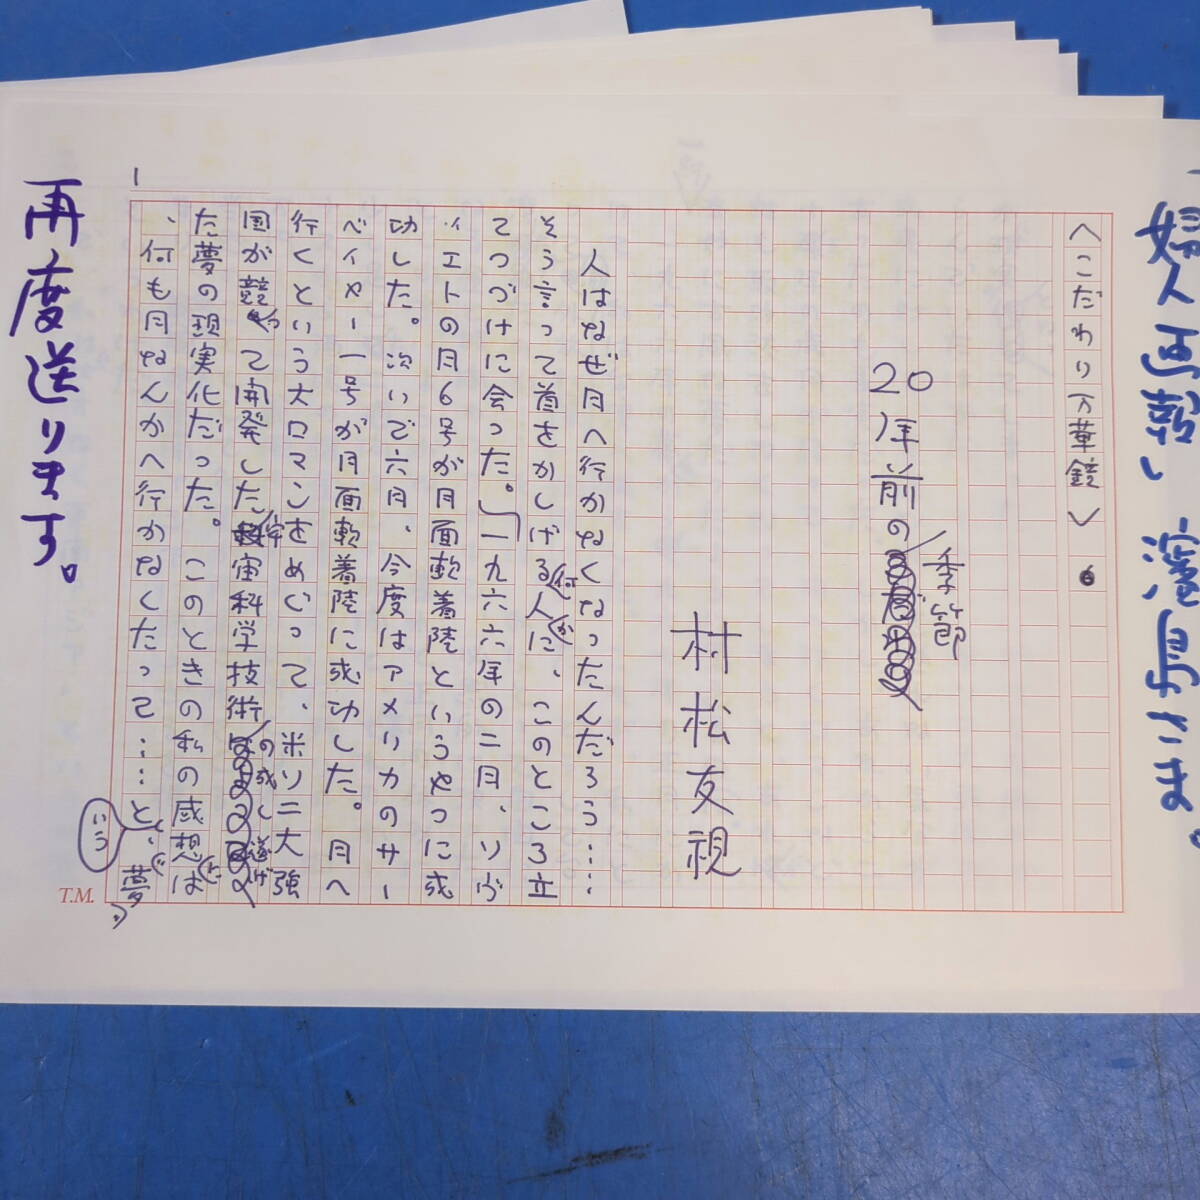 婦人画報 濱島さま。
〈こだわり万華鏡〉⑥
20年前の季節
村松友視
人はなぜ月へ行かなくなったんだろう……
そう言って首をかしげる何人かに、このところ立
てつづけに会った。一九六六年の二月、ソヴ
ィエトの月6号が月面軟着陸というやつに成
功した。次いで六月、今度はアメリカのサー
ベイヤー一号が月面軟着陸に成功した。月へ
行くという大ロマンをめぐって、米ソ二大強
国が競って開発した宇宙科学技術の成し遂げ
た夢の現実化だった。このときの私の感想は
、何も月なんかへ行かなくたって……と、いう夢
1
T.M.
再度送ります。